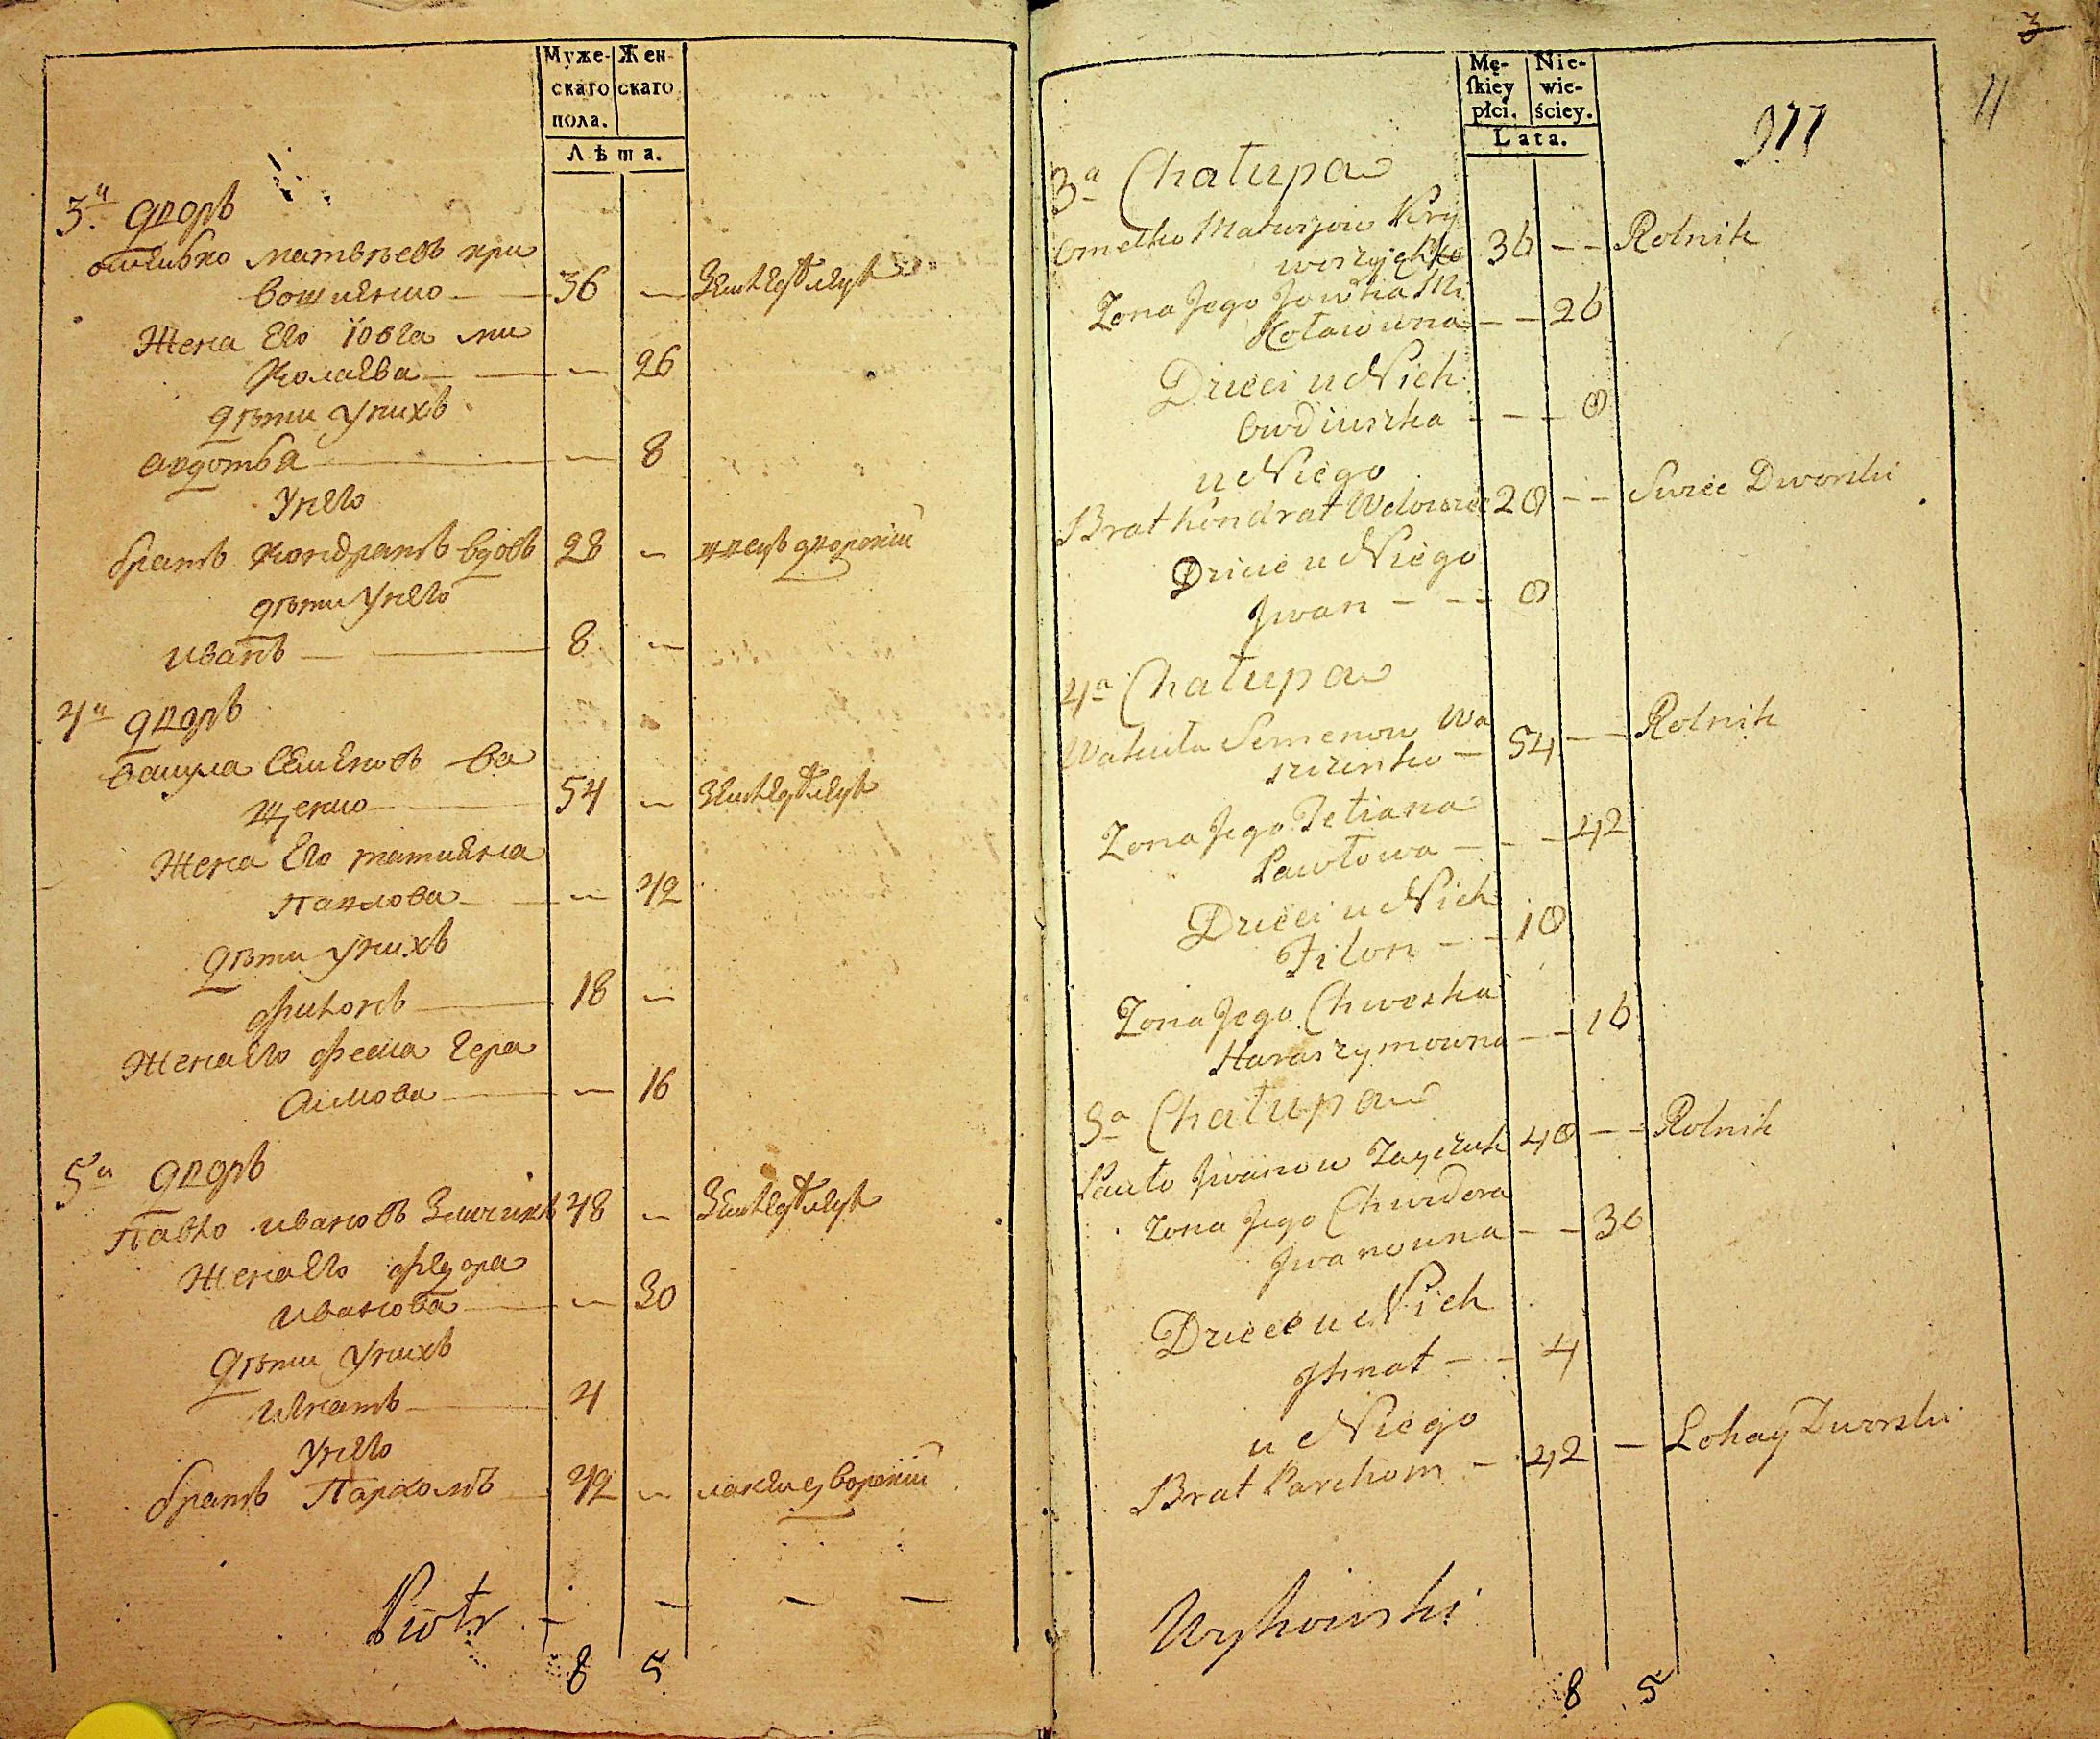 Муже- Жен-
скаго скаго
пола.
Лѣта.
3й дворъ
омелько матвѣевъ кри
вошиенко 36 — земледѣлецъ
Жена Его їовга ми
колаева — 26
дѣти унихъ
авдотья — 8
унего
братъ кондратъ вдовъ 28 — швецъ дворскiй
дѣти унего
иванъ 8 —
4й дворъ
вакула семеновъ ва
щенко 54 — земледѣлецъ
Жена Его татияна
павлова — 42
дѣти унихъ
филонъ 18 —
Жена Его фекла гера
симова — 16
5й дворъ
павло ивановъ 48 — земледѣлецъ
Жена Его федора
иванова — 30
дѣти унихъ
игнатъ 4
унего
братъ пархомъ 42 — локай дворскiй
Piotr — — — —
8 5
3
11
977
Mę- Nie-
ſkiey wie-
płci. ściey.
Lata.
3a Chałupa
Omelko Matwijow Kry
woszyjenko 36 — — Rolnik
Zona Jego Jowha Mi
kołaiowna — — 26
Dzieci u Nich
Owdiuszka — — 8
u Niego
Brat Kondrat Wdowiec 28 — — Szwiec Dworski
Dziecie u Niego
Jwan — — 8
4a Chałupa
Wakuła Semenow Wa
szczenko — 54 — — Rolnik
Zona Jego Tetiana
Pawłowa — — 42
Dzieci u Nich
Filon — — 18
Zona Jego Chweska
Haraszymowna — — 16
5a Chałupa
Pawło Jwanow Zayczuk 48 — — Rolnik
Zona Jego Chwedora
Jwanowna — — 30
Dziecie u Nich
Jhnat — — 4
u Niego
Brat Parchom — 42 — Lokay Dworski
Wykowski
8 5